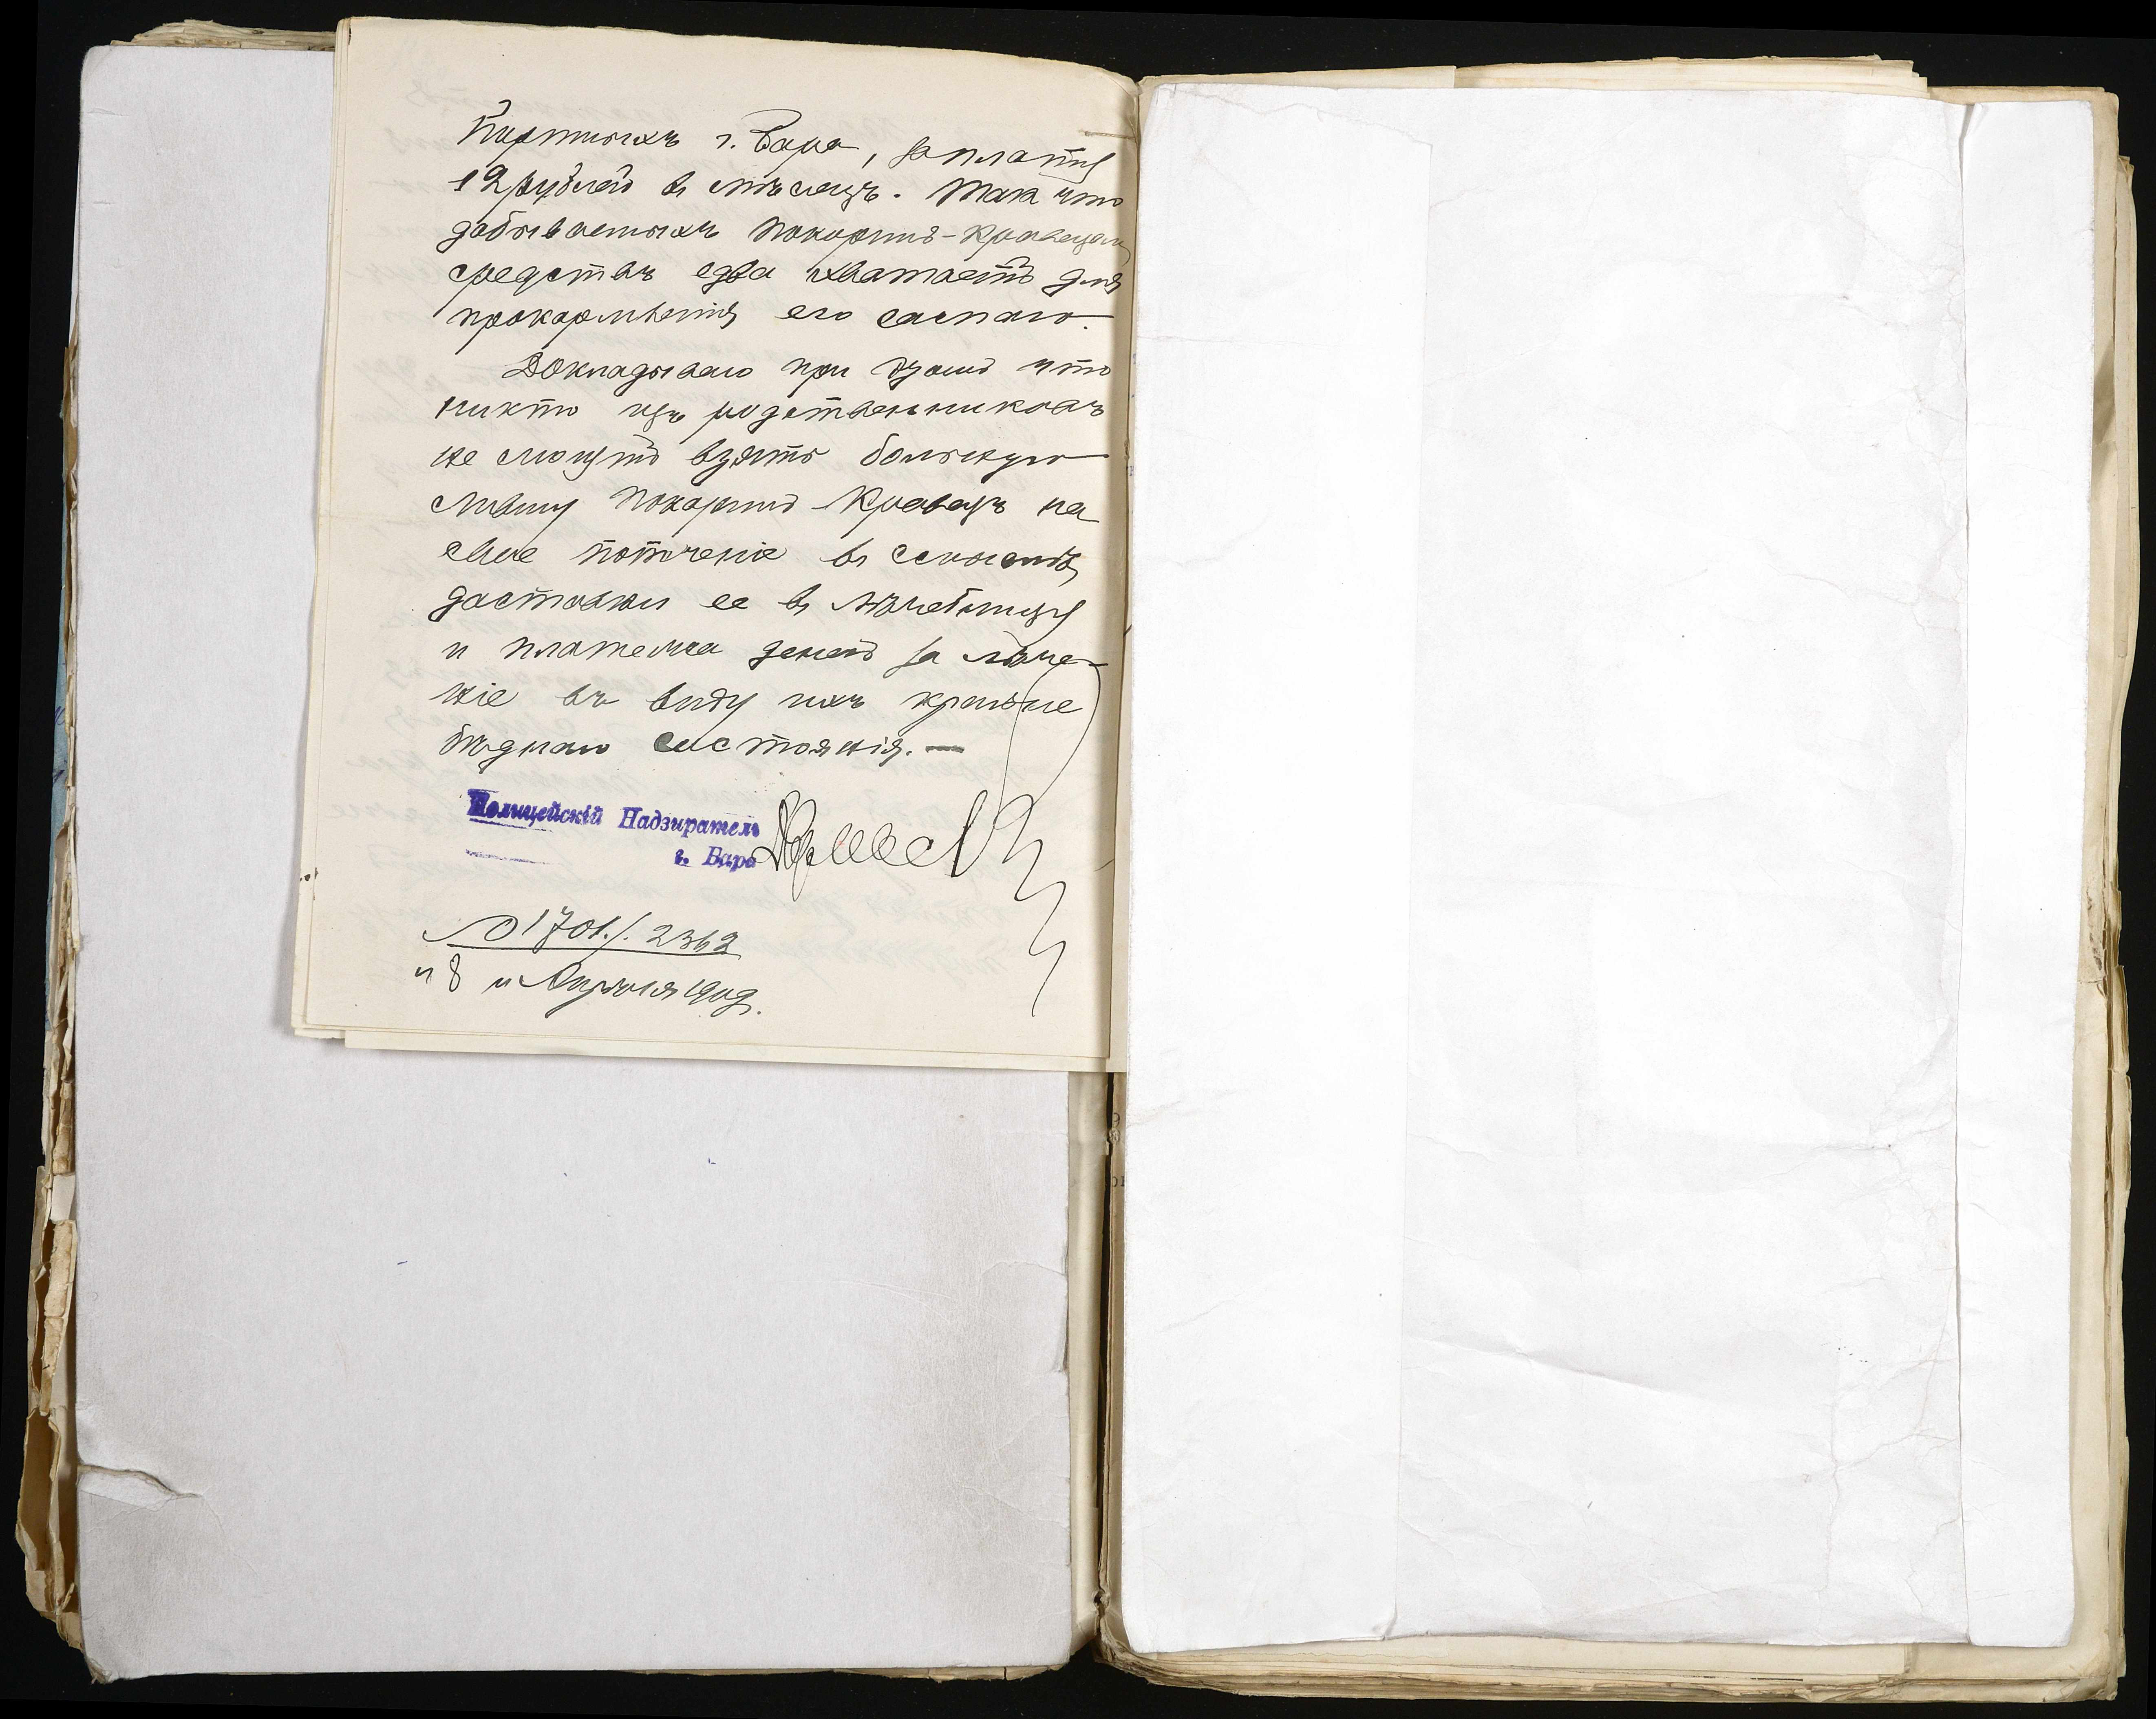 Портныхъ г. Бара, за плату
12 рублей въ мѣсяцъ. Такъ что
добываемыхъ Кравецомъ
средствъ едва хватаетъ для
прокормленія его самаго.
Докладываю при что
никто изъ родственниковъ
не могутъ взять больную
Кравецъ на
свое попеченіе въ смыслѣ
доставки ее въ лѣчебницу
и платежа денегъ за лѣче-
ніе въ виду ихъ крайне
бѣднаго состоянія. —
Полицейскій Надзиратель
г. Бара
№ 1701./. 2362
"8" Апрѣля 1909г.